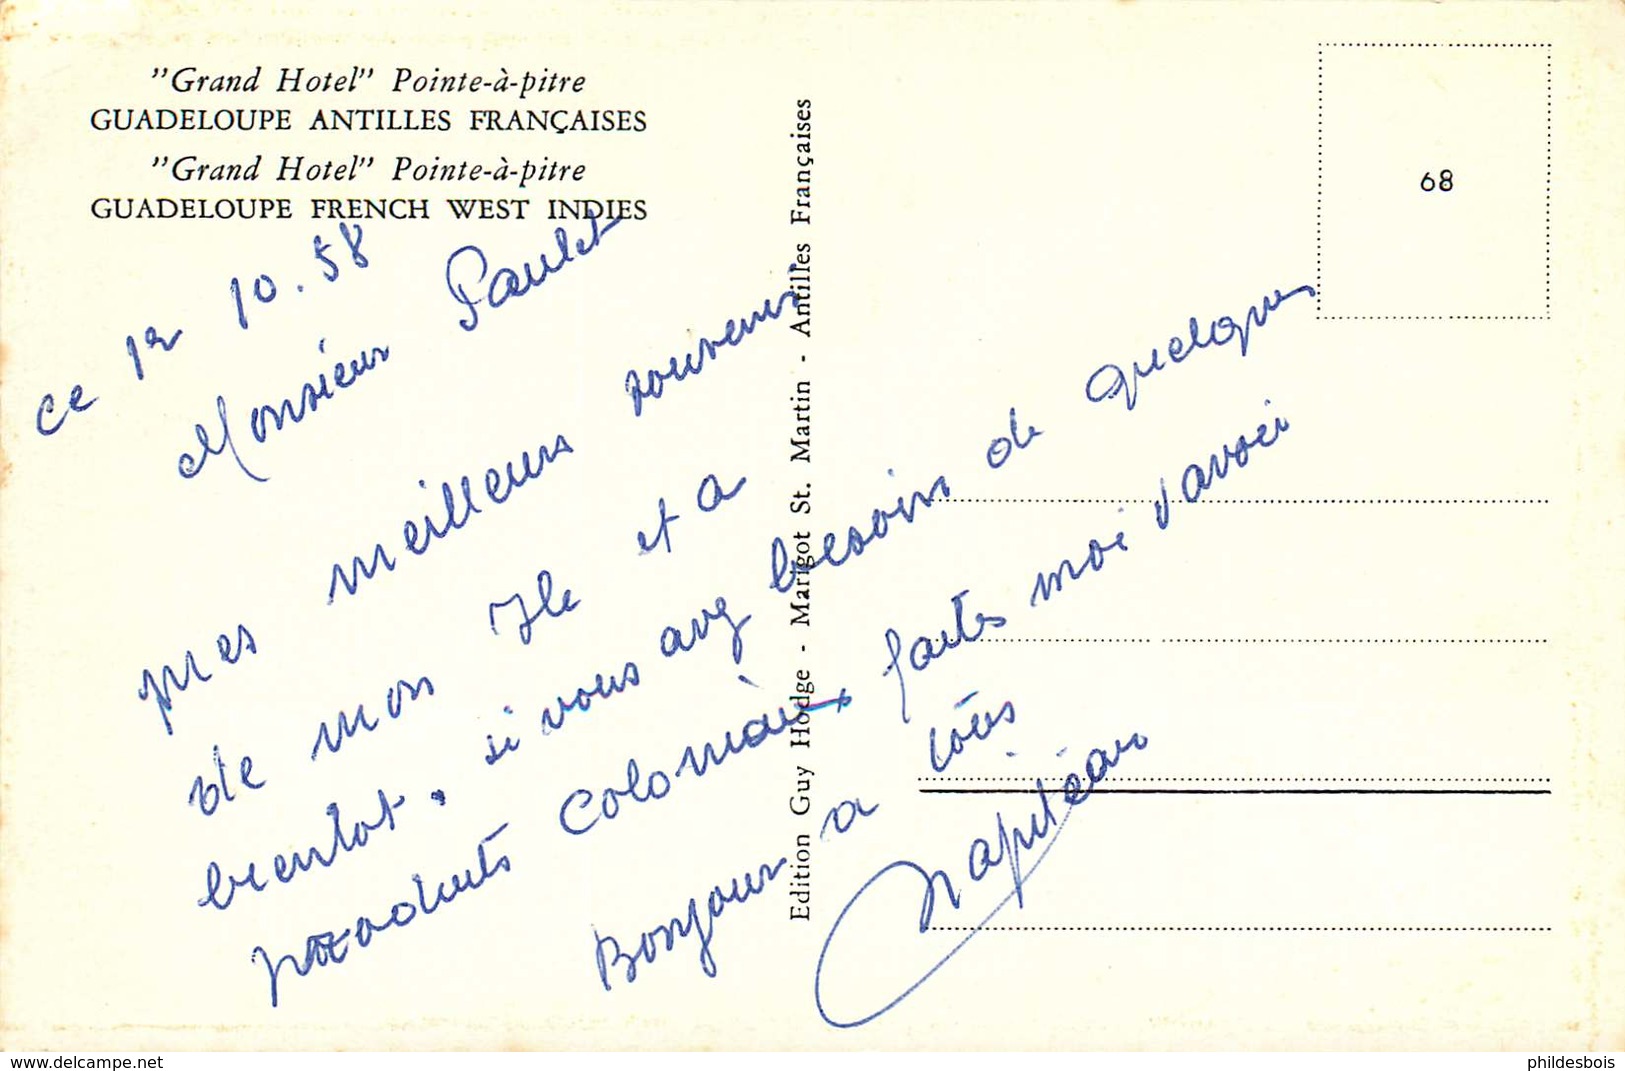 "Grand Hotel" Pointe-à-pitre
GUADELOUPE ANTILLES FRANÇAISES
"Grand Hotel" Pointe-à-pitre
GUADELOUPE FRENCH WEST INDIES
68
Edition Guy Hodge - Marigot St. Martin - Antilles Françaises
ce 12 10.58
Monsieur Paulet
mes meilleurs souvenirs
de mon Ile et a
bientot. si vous avez besoin de quelques
produits coloniaux faites moi savoir
Bonjour a tous
www.delcampe.net
phildesbois